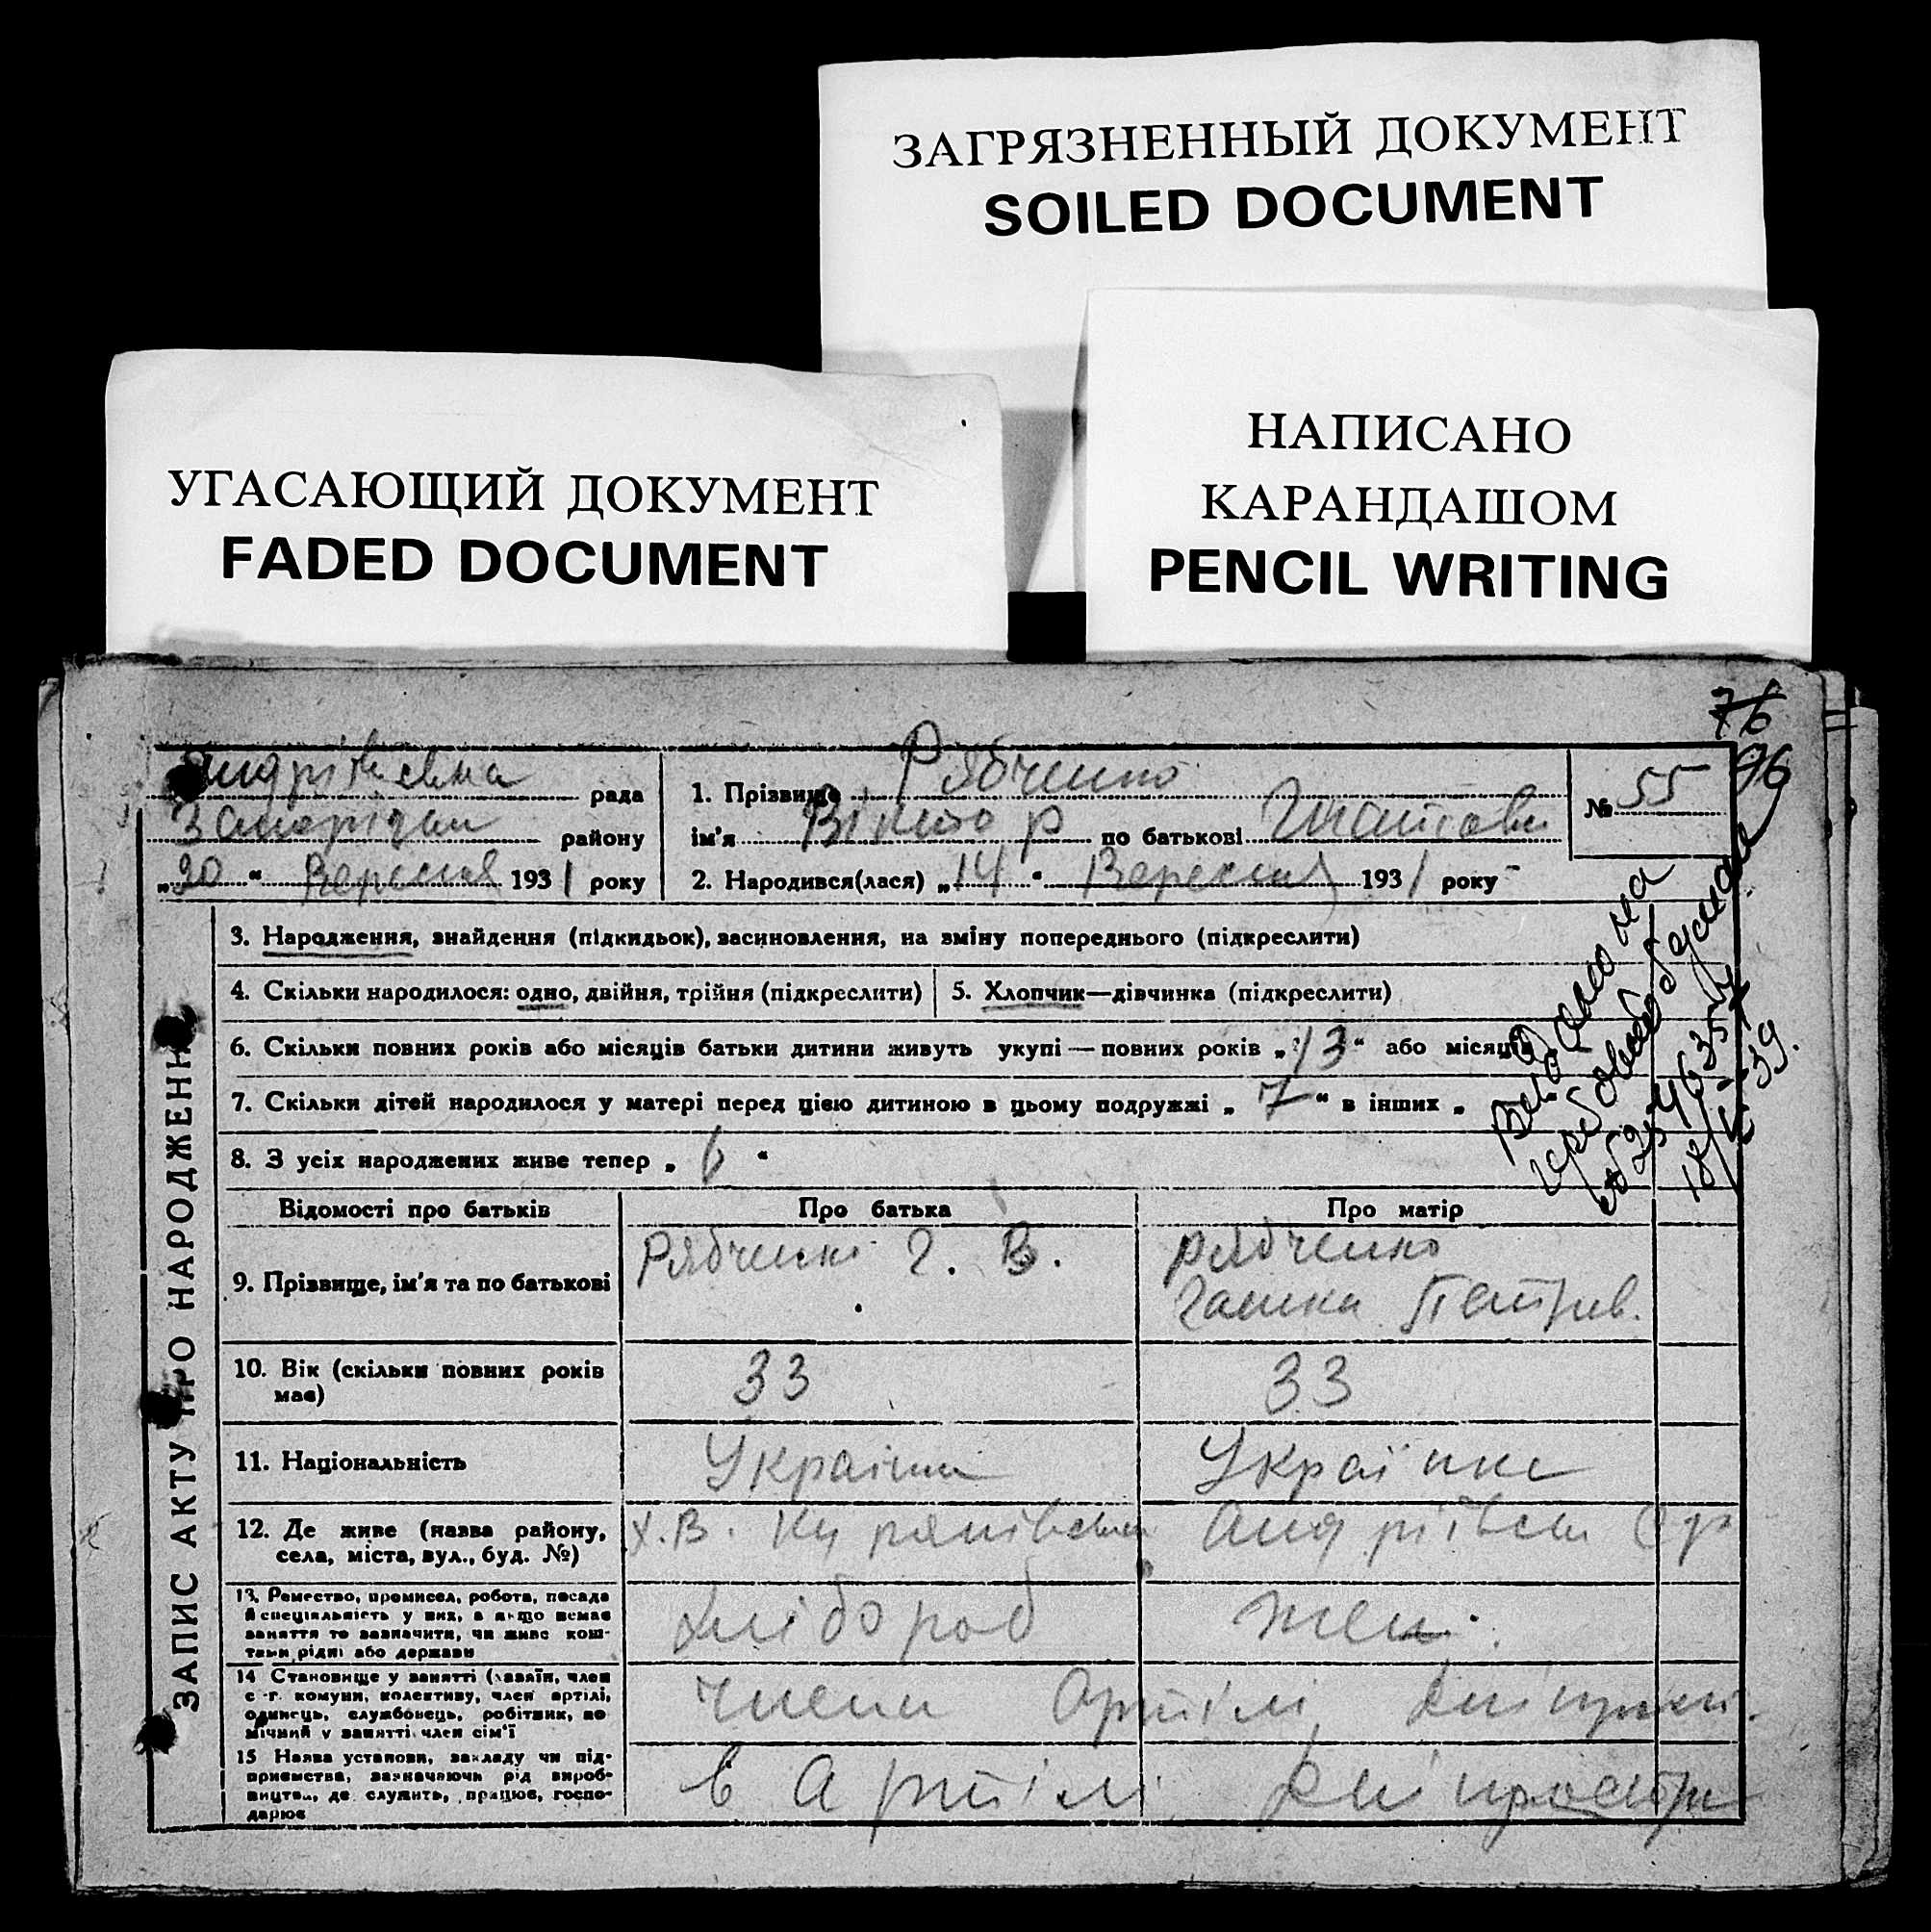 ЗАГРЯЗНЕННЫЙ ДОКУМЕНТ
SOILED DOCUMENT
УГАСАЮЩИЙ ДОКУМЕНТ
FADED DOCUMENT
НАПИСАНО
КАРАНДАШОМ
PENCIL WRITING
76
96
рада
району
„20“ Вересня 1931 року
1. Прізвище Рябченко
ім'я Віктор по батькові
2. Народився(лася) „14“ Вересня 1931 року
№ 55
ЗАПИС АКТУ ПРО НАРОДЖЕННЯ
3. Народження, знайдення (підкидьок), засиновлення, на зміну попереднього (підкреслити)
4. Скільки народилося: одно, двійня, трійня (підкреслити)
5. Хлопчик—дівчинка (підкреслити)
6. Скільки повних років або місяців батьки дитини живуть укупі — повних років „13“ або місяців
7. Скільки дітей народилося у матері перед цією дитиною в цьому подружжі „7“ в інших „
8. З усіх народжених живе тепер „6“
Відомості про батьків
Про батька
Про матір
9. Прізвище, ім'я та по батькові
Рябченко Г. В.
Рябченко
Ганна Петрів.
10. Вік (скільки повних років
має)
33
33
11. Національність
Українка
12. Де живе (назва району,
села, міста, вул., буд. №)
х. В.
13. Ремество, промисел, робота, посада
й спеціяльність у них, а якщо немає
заняття то зазначити, чи живе кош-
тами рідні або держави
Хлібороб
14 Становище у занятті (хазяїн, член
с.-г. комуни, колективу, член артілі,
одинець, службовець, робітник, по
мічний у занятті член сім'ї
члени Артілі
15 Назва установи, закладу чи під-
приємства, зазначаючи рід вироб-
ництва, де служить, працює, госпо-
дарює
в Артілі